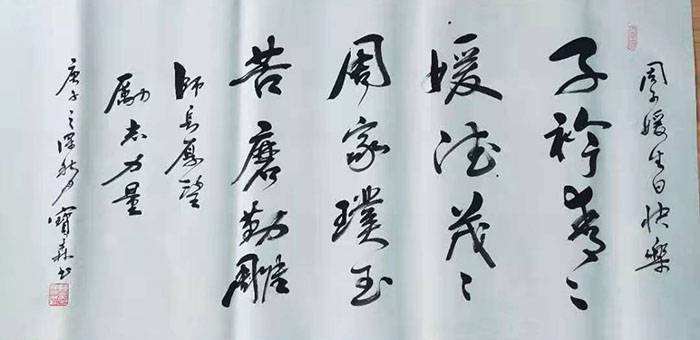 周子媛生日快樂
子衿青々
媛德茂々
周家璞玉
苦磨勤雕
師長厚望
勵志力量
庚子之深秋 寶森书